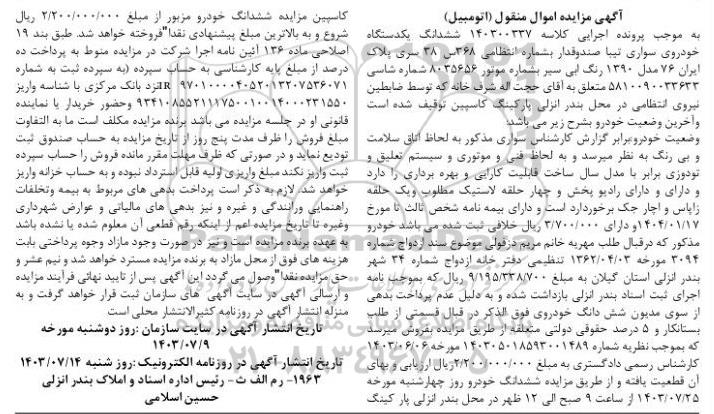 آگهی مزایده اموال منقول (اتومبیل)
به موجب پرونده اجرایی کلاسه ۱۴۰۳۰۰۳۳۷ ششدانگ یکدستگاه
خودروی سواری تیبا صندوقدار بشماره انتظامی ۳۶۸س ۳۸ سری پلاک
ایران ۷۶ مدل ۱۳۹۰ رنگ آبی سیر بشماره موتور ۸۰۳۵۶۵۶ شماره شاسی
۵۸۱۰۰۹۰۰۳۳۶۳۳ متعلق به آقای حجت اله شرف خانه که توسط ضابطین
نیروی انتظامی در محل بندر انزلی پارکینگ کاسپین توقیف شده است
وآخرین وضعیت خودرو بشرح زیر می باشد:
وضعیت خودرو:برابر گزارش کارشناس سواری مذکور به لحاظ اتاق سلامت
و بی رنگ به نظر میرسد و به لحاظ فنی و موتوری و سیستم تعلیق و
تودوزی برابر با مدل سال ساخت قابلیت کارایی و بهره برداری را دارد
و دارای و دارای رادیو پخش و چهار حلقه لاستیک مطلوب ویک حلقه
زاپاس و آچار جک برخورداراست و دارای بیمه نامه شخص ثالث تا مورخ
۱۴۰۴/۰۱/۱۷و دارای ۳/۷۰۰/۰۰۰ ریال خلافی ثبت شده می باشد خودرو
مذکور که درقبال طلب مهریه خانم مریم دزفولی موضوع سند ازدواج شماره
۳۰۹۴ مورخه ۱۳۶۲/۰۴/۰۳ تنظیمی دفتر خانه ازدواج شماره ۳۴ شهر
بندر انزلی استان گیلان به مبلغ ۹/۱۹۵/۳۳۸/۷۰۰ ریال که بموجب نامه
اجرای ثبت اسناد بندر انزلی بازداشت شده و به دلیل عدم پرداخت بدهی
از سوی مدیون شش دانگ خودروی فوق الذکر در قبال قسمتی از طلب
بستانکار و ۵ درصد حقوقی دولتی متعلقه از طریق مزایده بفروش میرسد
که بموجب نظریه شماره ۱۴۰۳۰۵۰۱۸۵۹۳۰۰۱۴۸۹ مورخه ۱۴۰۳/۰۶/۰۶
کارشناس رسمی دادگستری به مبلغ ۲/۲۰۰/۰۰۰/۰۰۰ریال ارزیابی و بهای
آن قطعیت یافته و از طریق مزایده ششدانگ خودرو روز چهارشنبه مورخه
۱۴۰۳/۰۷/۲۵ از ساعت ۹ صبح الی ۱۲ ظهر در محل بندر انزلی پار کینگ
کاسپین مزایده ششدانگ خودرو مزبور از مبلغ ۲/۲۰۰/۰۰۰/۰۰۰ ریال
شروع و به بالاترین مبلغ پیشنهادی نقدا"فروخته خواهد شد. طبق بند ۱۹
اصلاحی ماده ۱۳۶ آئین نامه اجرا شرکت در مزایده منوط به پرداخت ده
درصد از مبلغ پایه کارشناسی به حساب سپرده (به سپرده ثبت به شماره
نزد بانک مرکزی با شناسه واریز
وحضور خریدار یا نماینده
قانونی او در جلسه مزایده می باشد برنده مزایده مکلف است ما به التفاوت
مبلغ فروش را ظرف مدت پنج روز از تاریخ مزایده به حساب صندوق ثبت
تودیع نماید و در صورتی که ظرف مهلت مقرر مانده فروش را حساب سپرده
ثبت واریز نکند مبلغ واریزی اولیه قابل استرداد نبوده و به حساب خزانه واریز
خواهد شد. لازم به ذکر است پرداخت بدهی های مربوط به بیمه وتخلفات
راهنمایی ورانندگی و غیره و نیز بدهی های مالیاتی و عوارض شهرداری
وغیره تا تاریخ مزایده اعم از اینکه رقم قطعی آن معلوم شده یا نشده باشد
به عهده برنده مزایده است ونیز در صورت وجود مازاد وجوه پرداختی بابت
هزینه های فوق از محل مازاد به برنده مزایده مسترد خواهد شد و نیم عشر و
حق مزایده نقدا"وصول می گردد این آگهی پس از تایید نهائی فرآیند مزایده
و ارسالی آگهی در سایت آگهی های سازمان ثبت قرار خواهد گرفت و به
منزله انتشار آگهی در روزنامه کثیرالانتشار محلی است
تاریخ انتشار آگهی در سایت سازمان :روز دوشنبه مورخه
۱۴۰۳/۰۷/۹
تاریخ انتشار آگهی در روزنامه الکترونیک :روز شنبه ۱۴۰۳/۰۷/۱۴
۱۹۶۳- رم الف ث - رئیس اداره اسناد و املاک بندر انزلی
حسین اسلامی